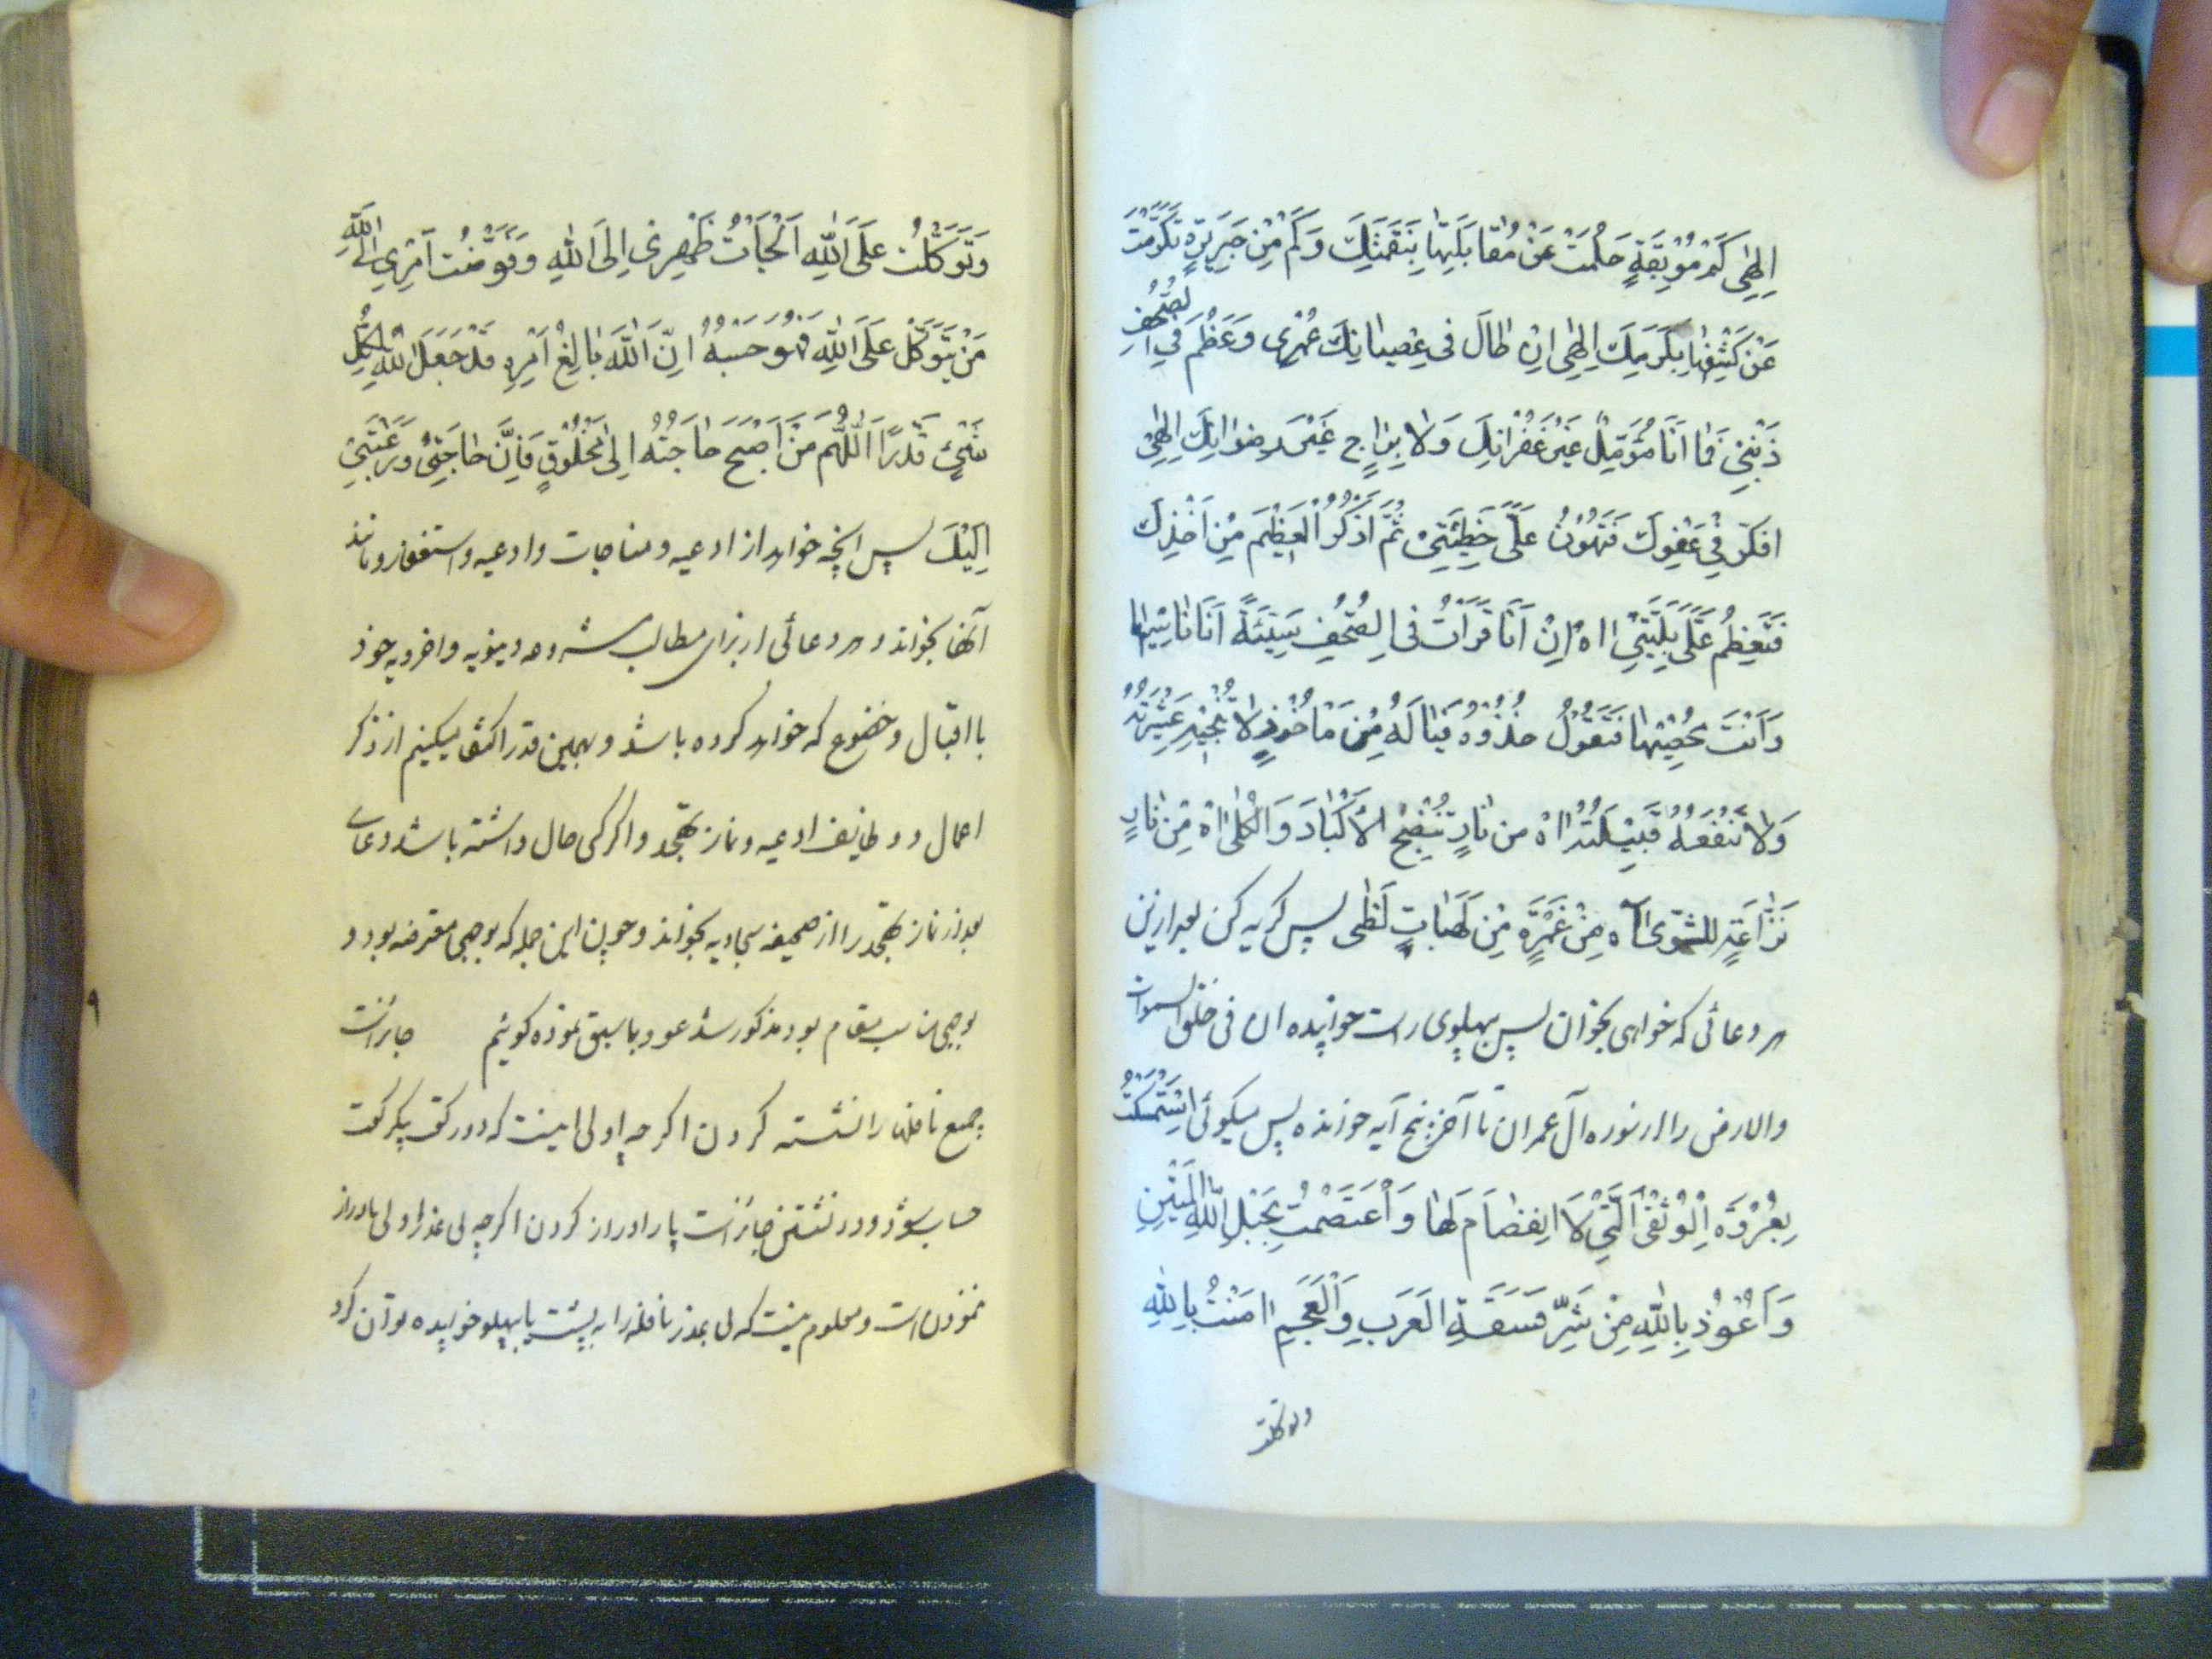 اِلٰهِی کَمْ مُوْبِقَةٍ حَلُمَتْ عَنْ مُقابَلَتِهٰا بِنَقَمَتِکَ وَکَمْ مِنْ جَرِیرَةٍ تَکَرَّمْتَ
عَنْ کَشْفِهٰا بِکَرَمِکَ اِلٰهِی اِنْ طٰالَ فی عِصْیٰانِکَ عُمْری وَعَظُمَ فِی الصُّحُفِ
ذَنْبِیْ فَمٰا اَنَا مُؤَمِّلٌ غَیْرَ غُفْرٰانِکَ وَلا بِرٰاجٍ غَیْرَ رِضْوٰانِکَ اِلٰهِیْ
افکّر فِیْ عَفْوِکَ فَتَهُوْنُ عَلَیَّ خَطِیْئَتِیْ ثُمَّ اَذْکُرُ الْعَظِیْمَ مِنْ اَخْذِکَ
فَتَعْظُمُ عَلَیَّ بَلِیَّتِیْ اه اِنْ اَنَا قَرَأْتُ فی الصُّحُفِ سَیِّئَةً اَنَا نٰاسِیْهٰا
وَاَنْتَ مُحْصِیْهٰا فَتَقُوْلُ خُذُوْهُ فَیٰا لَهُ مِنْ مَأْخُوْذٍ لا تُنْجِیْهِ عَشِیْرَتُهُ
وَلا تَنْفَعُهُ قَبِیْلَتُهُ اٰهْ من نٰارٍ تُنْضِجُ الْاَکْبٰادَ وَالْکُلیٰ اٰهْ مِنْ نٰارٍ
نَزّٰاعَةٍ للشّوٰی آه مِنْ غَمْرَةٍ مِنْ لَهَبٰاتِ لَظٰی پس کریه کن بعد ازین
هر دعائی که خواهی بخوان پس بپهلوی راست خوابیده ان فی خلق السموات
والارض را از سوره آل عمران تا آخر پنج آیه خوانده پس میکوئی اِسْتَمْسَکْتُ
بِعُرْوَةِ الْوُثْقیٰ الَّتِیْ لاَ انْفِصٰامَ لَهٰا وَ اَعْتَصَمْتُ بِحَبْلِ اللّٰهِ الْمَتِیْنِ
وَ اَعُوْذُ بِاللّٰهِ مِنْ شَرِّ فَسَقَةِ الْعَرَبِ وَالْعَجَمِ امَنْتُ بِاللّٰهِ
وتوکلت
وَتَوَکَّلْتُ عَلَی اللّٰهِ اَلْجَأْتُ ظَهْرِی اِلَی اللّٰهِ وَفَوَّضْتُ اَمْرِی اِلَی اللّٰهِ
مَنْ یَتَوَکَّلْ عَلَی اللّٰهِ فَهُوَ حَسْبُهُ اِنَّ اللّٰهَ بٰالِغُ اَمْرِهِ قَدْ جَعَلَ اللّٰهُ لِکُلِّ
شَیْئٍ قَدْرًا اَللّٰهُمَّ مَنْ اَصْبَحَ حٰاجَتُهُ اِلیٰ مَخْلُوْقٍ فَاِنَّ حٰاجَتِیْ وَرَغْبَتِیْ
اِلَیْکَ پس آنچه خواهد از ادعیه و مناجات وادعیه واستغفار و مانند
آنها بخواند و هر دعائی از برای مطالب مشروعه دینویه واخرویه خود
با اقبال و خضوع که خواهد کرده باشد و بهمین قدر اکتفا میکنیم از ذکر
اعمال و وظایف ادعیه و نماز تهجّد و اکر کسی حال داشته باشد دعای
بعد از نماز تهجّد را از صحیفه سجادیه بخواند و چون این جمله که بوجهی معترضه بود و
بوجهی مناسب مقام بود مذکور شد عود بما سبق نموده کوئیم جایز است
جمیع نافلها را نشسته کردن اکرچه اولی اینست که دو رکعت بیکرکعت
حساب شود و در نشستن جایز است پا را دراز کردن اکرچه بی عذر اولی نا دراز
نمودن است و معلوم نیست که بی عذر نافله را به پشت یا پهلو خوابیده بتوان کرد
۹